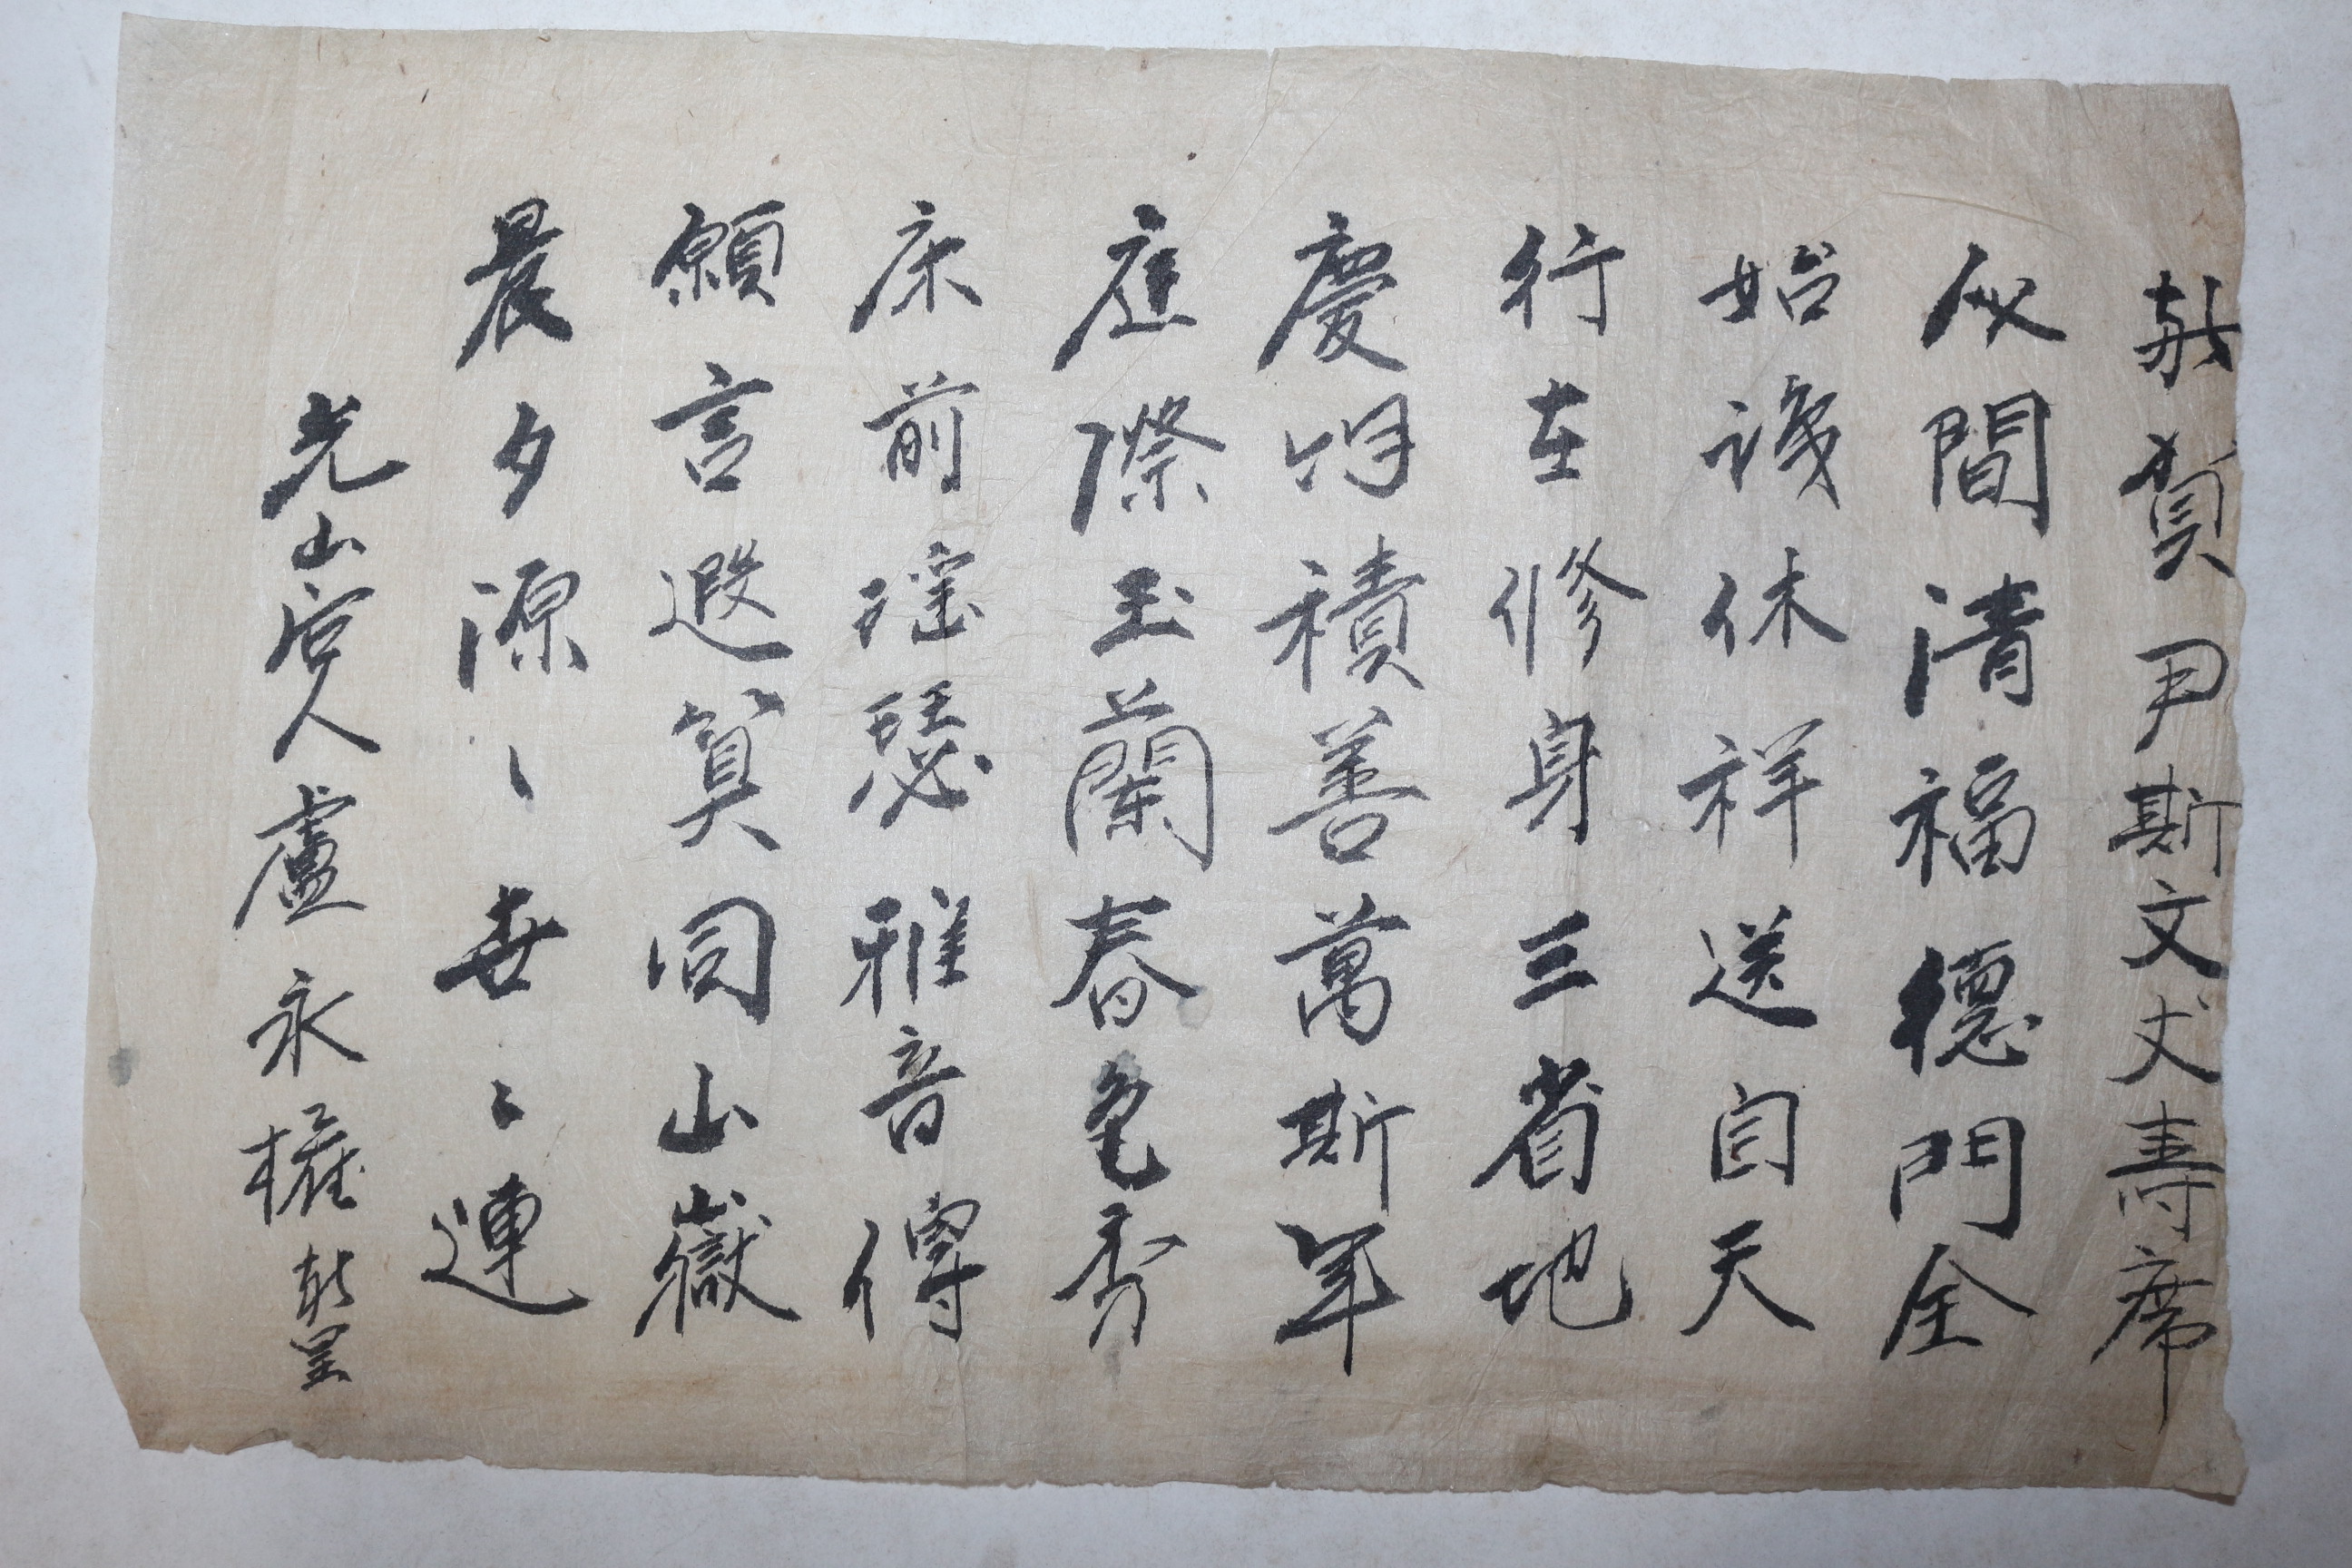 敬賀尹斯文丈壽席
人間清福德門全
始識休祥送自天
行在修身三省地
慶明積善萬斯年
庭際玉蘭春色秀
床前瑤瑟雅音傳
願言遐算同山嶽
晨夕源〻喜〻連
光山后人盧永權敬呈